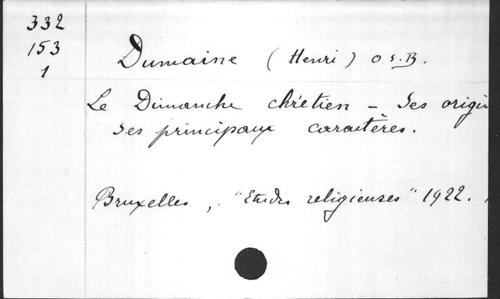 332
153
1
Dumaine (Henri) O S.B.
Le Dimanche chrétien - Ses origi
ses principaux caractères.
Bruxelles, "Etudes religieuses" 1922.